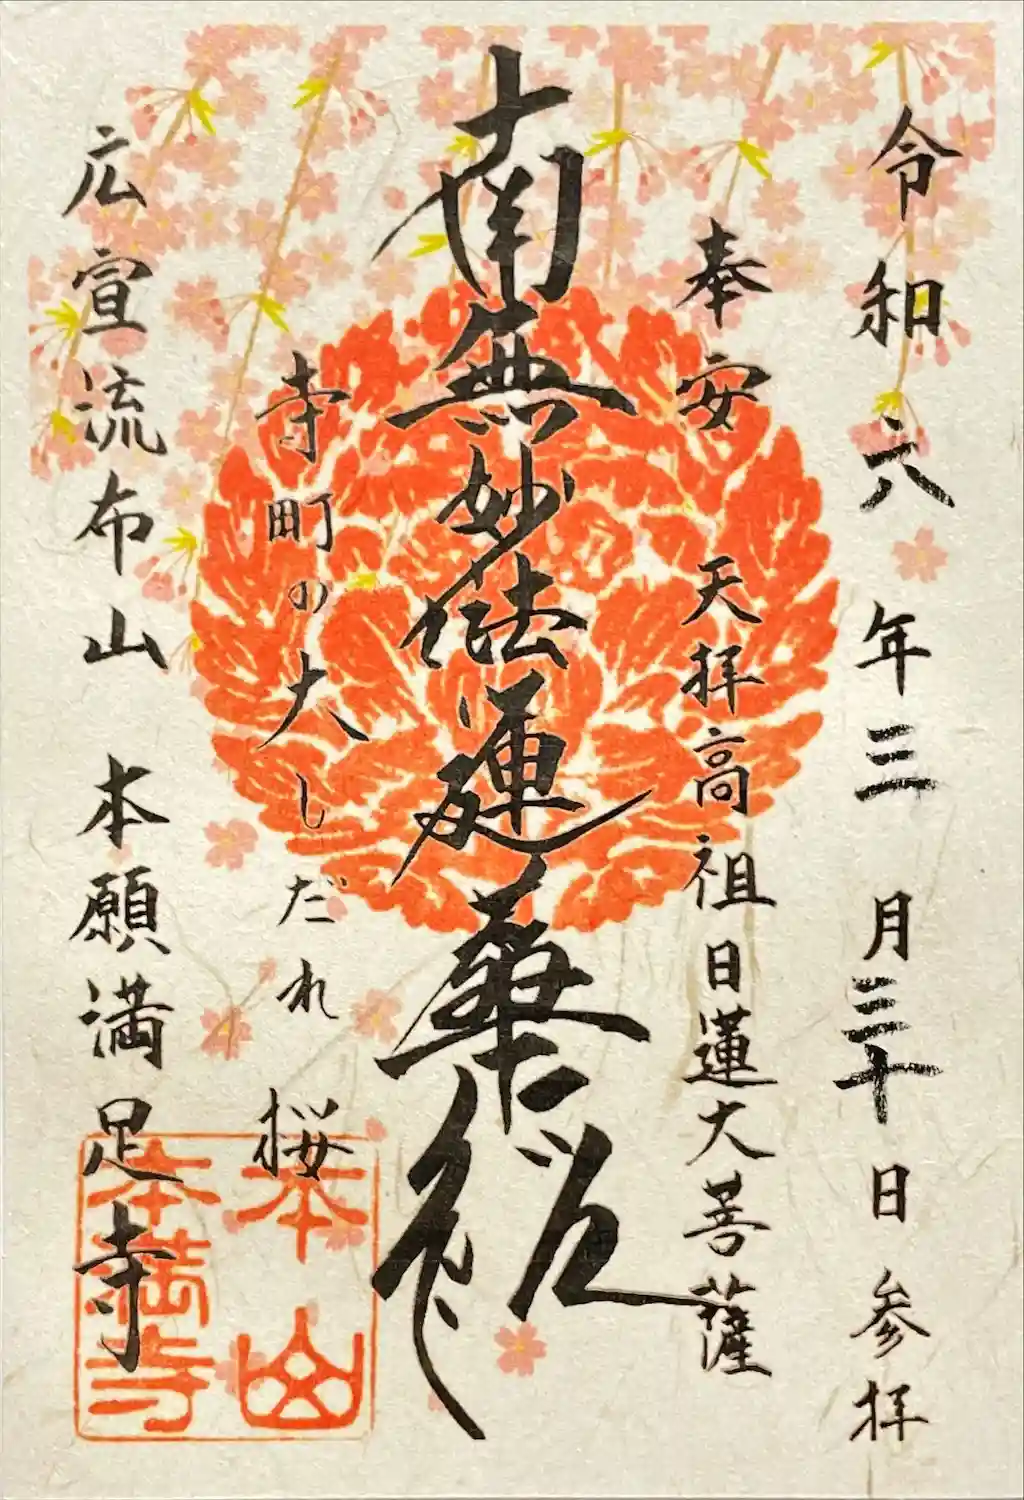 令和六年三月三十日参拝
奉安 天拝高祖日蓮大菩薩
南無妙法蓮華経
寺町の大しだれ桜
広宣流布山 本願満足寺
本山
本満寺